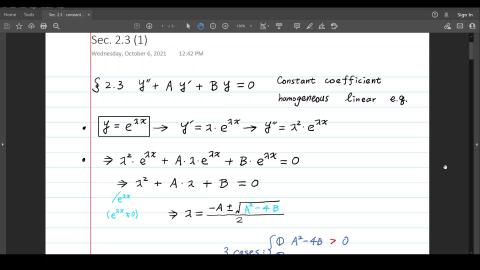 Sec. 2.3 - constant...
Sign In
Sec. 2.3 (1)
Wednesday, October 6, 2021 12:42 PM
§ 2.3 y'' + A y' + B y = 0 Constant coefficient
homogeneous linear e.g.
• y = e^{λx} → y' = λ · e^{λx} → y'' = λ² · e^{λx}
• ⇒ λ² · e^{λx} + A · λ · e^{λx} + B · e^{λx} = 0
⇒ λ² + A · λ + B = 0
/e^{λx}
(e^{λx} ≠ 0) ⇒ λ = \frac{-A ± √(A² - 4B)}{2}
3 cases: ① A² - 4B > 0